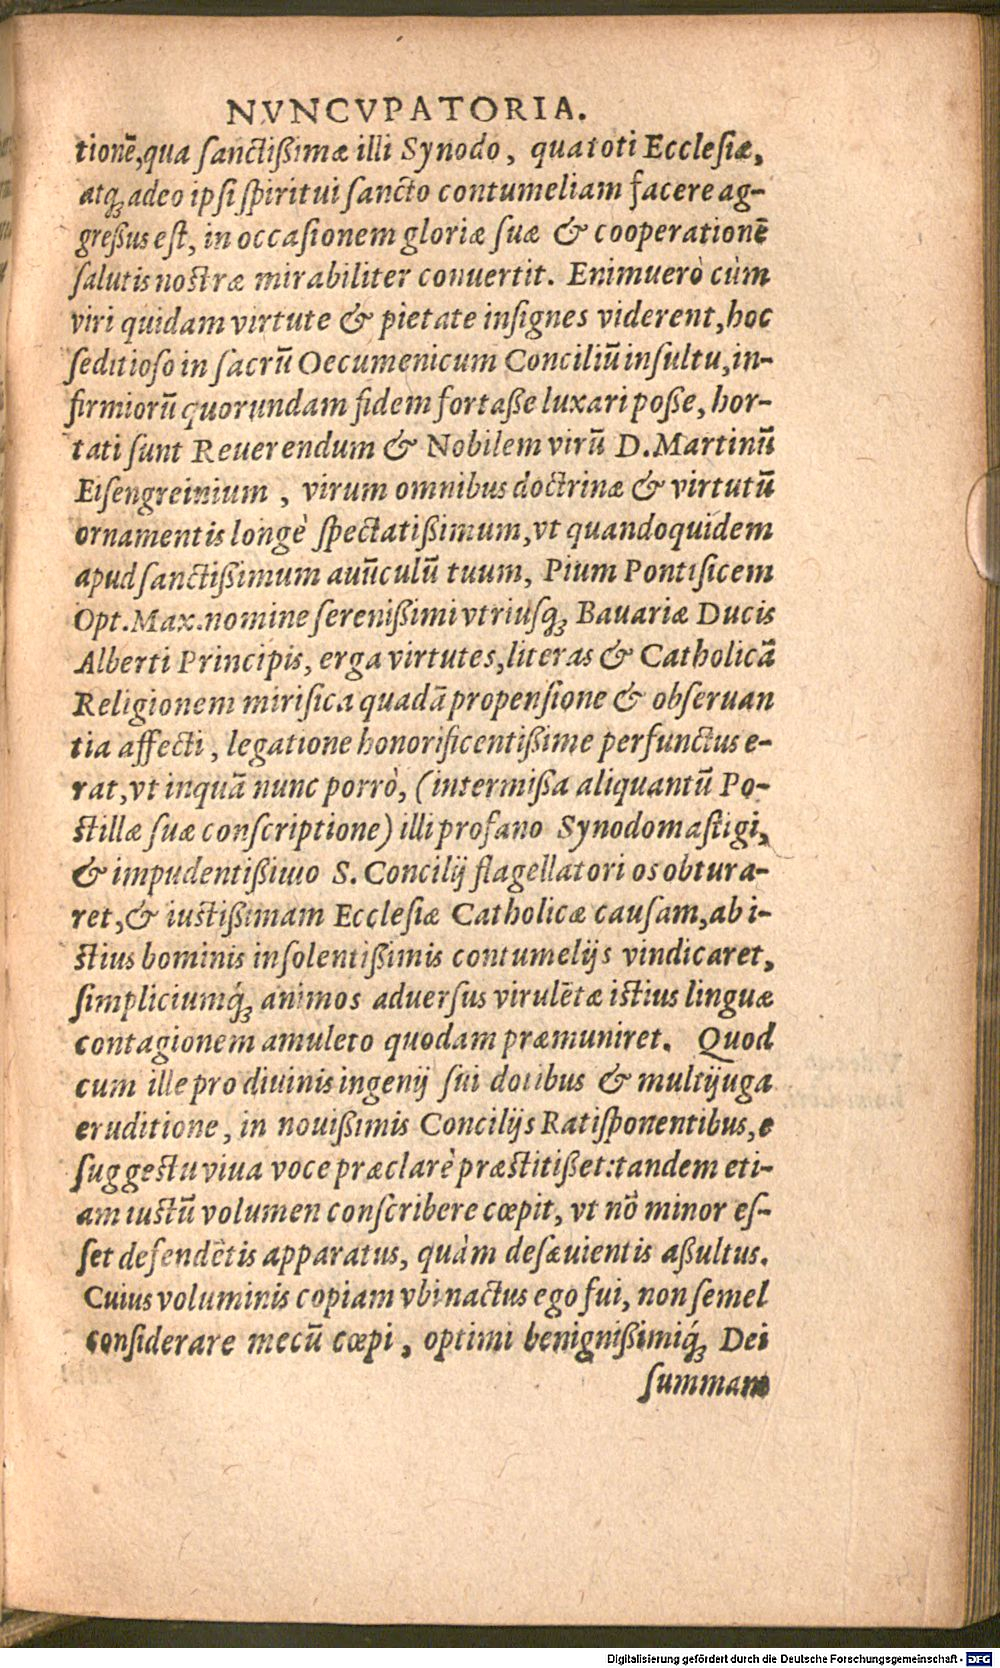 NVNCVPATORIA.
tionē, qua ſanctißimæ illi Synodo, qua toti Eccleſiæ,
atq́ʒ adeo ipſi ſpiritui ſancto contumeliam facere ag-
greßus eſt, in occaſionem gloriæ ſuæ & cooperationē
ſalutis noſtræ mirabiliter conuertit. Enimuerò cùm
viri quidam virtute & pietate inſignes viderent, hoc
ſeditioſo in ſacrū Oecumenicum Conciliū inſultu, in-
firmiorū quorundam fidem fortaße luxari poße, hor-
tati ſunt Reuerendum & Nobilem virū D. Martinū
Eiſengreinium, virum omnibus doctrinæ & virtutū
ornamentis longè ſpectatißimum, vt quandoquidem
apud ſanctißimum auūculū tuum, Pium Pontificem
Opt. Max. nomine ſerenißimi vtriuſqʒ Bauariæ Ducis
Alberti Principis, erga virtutes, literas & Catholicā
Religionem mirifica quadā propenſione & obſeruan
tia affecti, legatione honorificentißime perfunctus e-
rat, vt inquā nunc porrò, (intermißa aliquantū Po-
ſtillæ ſuæ conſcriptione) illi profano Synodomaſtigi,
& impudentißimo S. Concilij flagellatori os obtura-
ret, & iuſtißimam Eccleſiæ Catholicæ cauſam, ab i-
ſtius hominis inſolentißimis contumelijs vindicaret,
ſimpliciumq́ʒ animos aduerſus virulētæ iſtius linguæ
contagionem amuleto quodam præmuniret. Quod
cum ille pro diuinis ingenij ſui dotibus & multijuga
eruditione, in nouißimis Concilijs Ratiſponentibus, e
ſuggeſtu viua voce præclarè præſtitißet: tandem eti-
am iuſtū volumen conſcribere cœpit, vt nō minor eſ-
ſet defendētis apparatus, quàm deſæuientis aßultus.
Cuius voluminis copiam vbi nactus ego fui, non ſemel
conſiderare mecū cœpi, optimi benignißimiq́ʒ Dei
ſummam
Digitalisierung gefördert durch die Deutsche Forschungsgemeinschaft - DFG